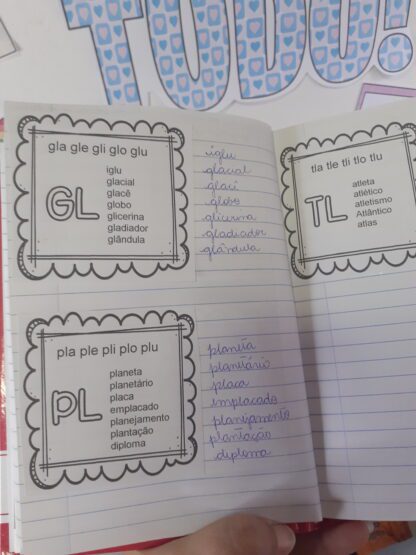 TUDO!
gla gle gli glo glu
GL
iglu
glacial
glacê
globo
glicerina
gladiador
glândula
iglu
glacial
glacê
globo
glicerina
gladiador
glândula
pla ple pli plo plu
PL
planeta
planetário
placa
emplacado
planejamento
plantação
diploma
planeta
planetário
placa
emplacado
planejamento
plantação
diploma
tla tle tli tlo tlu
TL
atleta
atlético
atletismo
Atlântico
atlas